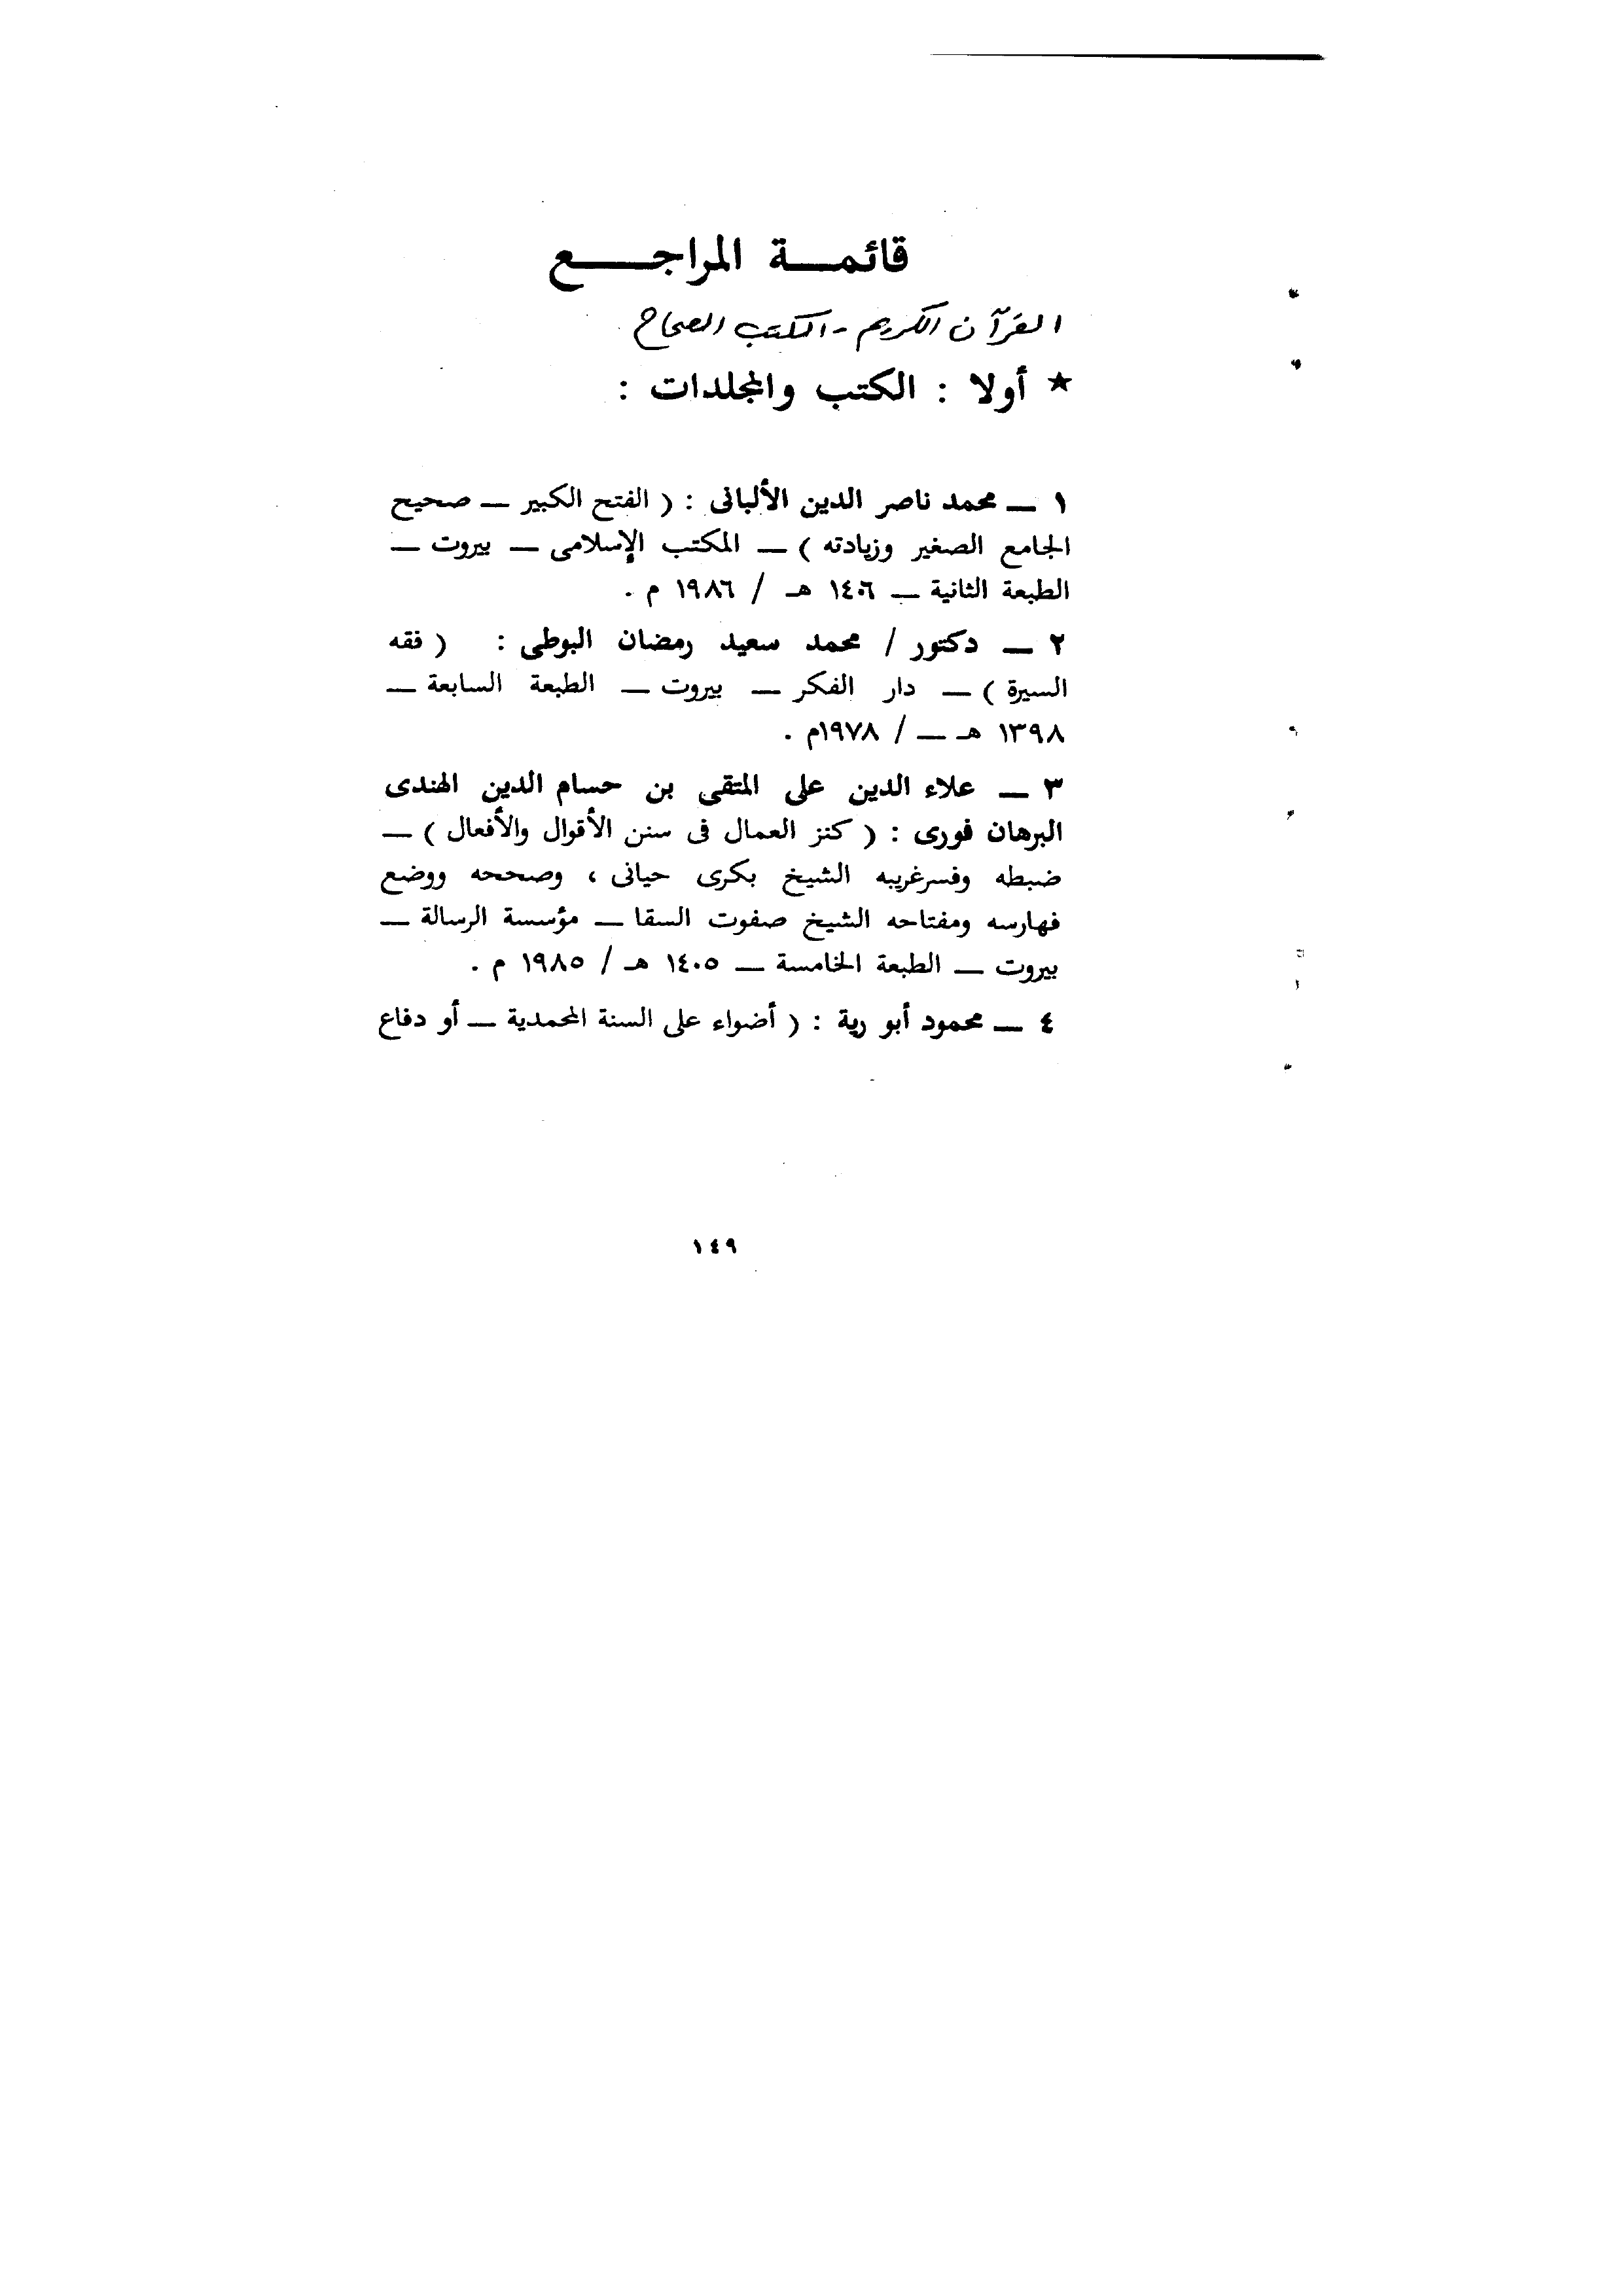 قائمـــة المراجـــــع
القرآن الكريم - الكتب الصحاح
★ أولا : الكتب والمجلدات :
١ ــ محمد ناصر الدين الألبانى : ( الفتح الكبير ــ صحيح
الجامع الصغير وزيادته ) ــ المكتب الإسلامى ــ بيروت ــ
الطبعة الثانية ــ ١٤٠٦ هـ / ١٩٨٦ م .
٢ ــ دكتور / محمد سعيد رمضان البوطى : ( فقه
السيرة ) ــ دار الفكر ــ بيروت ــ الطبعة السابعة ــ
١٣٩٨ هـ ــ / ١٩٧٨م .
٣ ــ علاء الدين على المتقى بن حسام الدين الهندى
البرهان فورى : ( كنز العمال فى سنن الأقوال والأفعال ) ــ
ضبطه وفسرغريبه الشيخ بكرى حيانى ، وصححه ووضع
فهارسه ومفتاحه الشيخ صفوت السقا ــ مؤسسة الرسالة ــ
بيروت ــ الطبعة الخامسة ــ ١٤٠٥ هـ / ١٩٨٥ م .
٤ ــ محمود أبو رية : ( أضواء على السنة المحمدية ــ أو دفاع
١٤٩